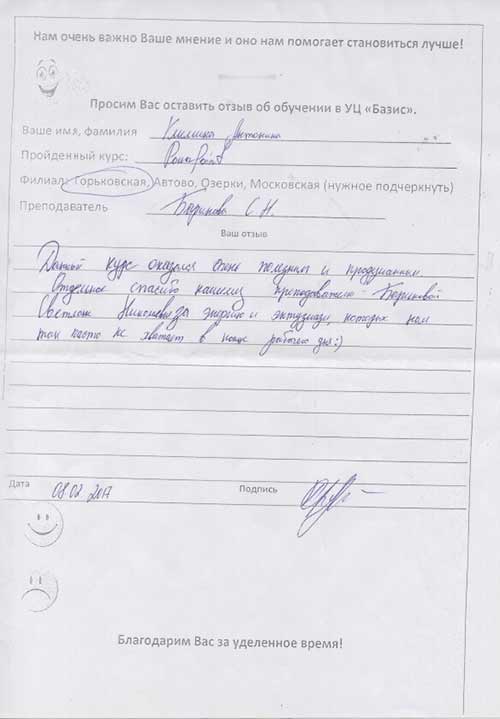 Нам очень важно Ваше мнение и оно нам помогает становиться лучше!
Просим Вас оставить отзыв об обучении в УЦ «Базис».
Ваше имя, фамилия Антонина
Пройденный курс: PowerPoint
Филиал: Горьковская, Автово, Озерки, Московская (нужное подчеркнуть)
Преподаватель Баринова С. Н.
Ваш отзыв
Данный курс оказался очень полезным и продуманным.
Отдельное спасибо нашему преподавателю Бариновой
Светлане Николаевне за энергию и энтузиазм, которых нам
так часто не хватает в конце рабочего дня:)
Дата 08.02.2017 Подпись
Благодарим Вас за уделенное время!